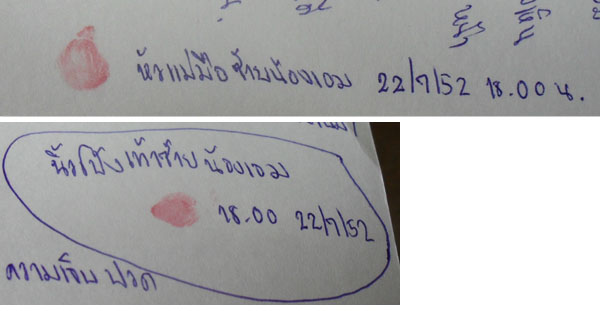 หัวแม่มือซ้ายน้องเอม 22/7/52 18.00 น.
นิ้วโป้งเท้าซ้าย น้องเอม
18.00 22/7/52
ความเจ็บปวด